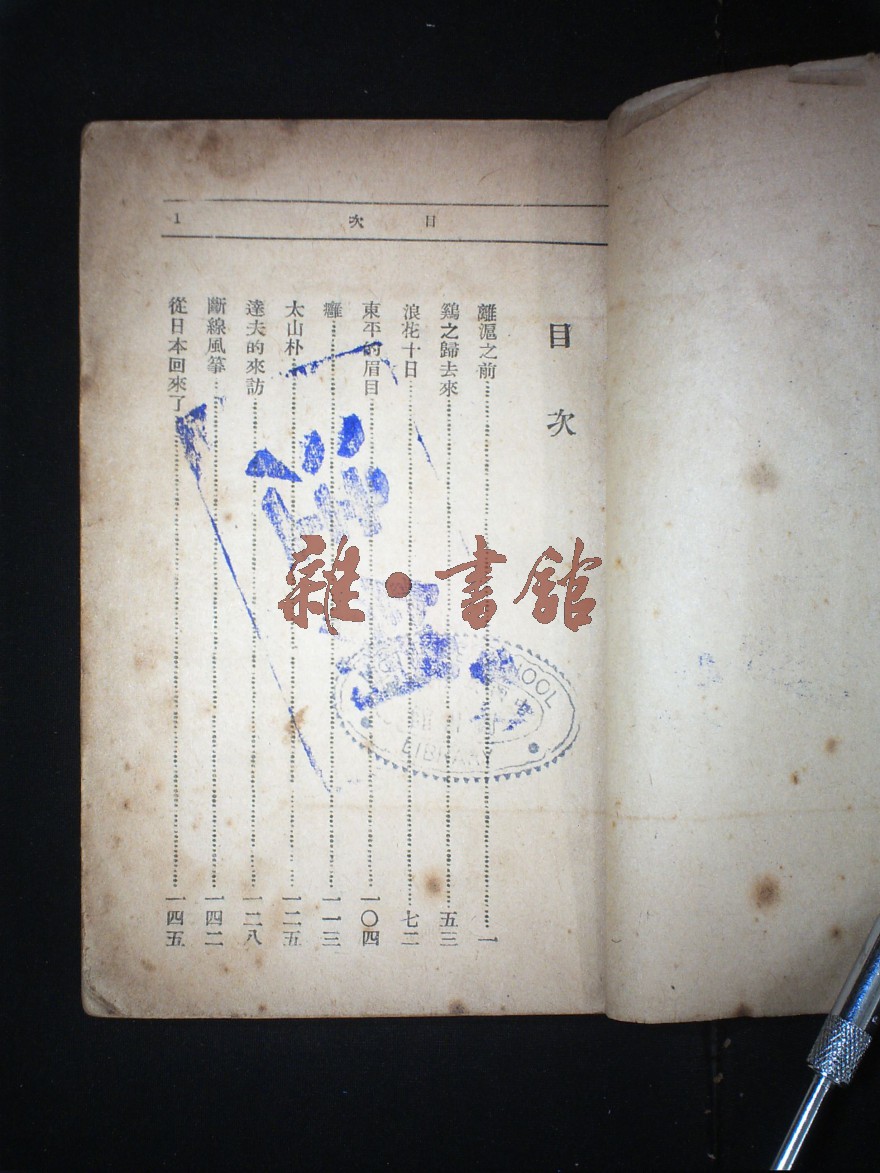 目次
1
目次
離滬之前……一
鷄之歸去來……五三
浪花十日……七二
東平的眉目……一〇四
癰……一一三
太山朴……一二五
達夫的來訪……一二八
斷線風箏……一四二
從日本回來了……一四五
雜·書館
LIBRARY